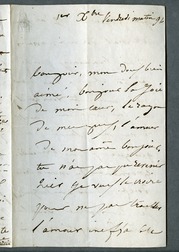 1er Xbre vendredi matin 9h
bonjour, mon doux bien
aimé, bonjour la joie
de mon cœur, le rayon
de mes yeux, l'amour
de mon âme bonjour,
tu n'as pas pu revenir
hier je veux le croire
pour ne pas
l'amour